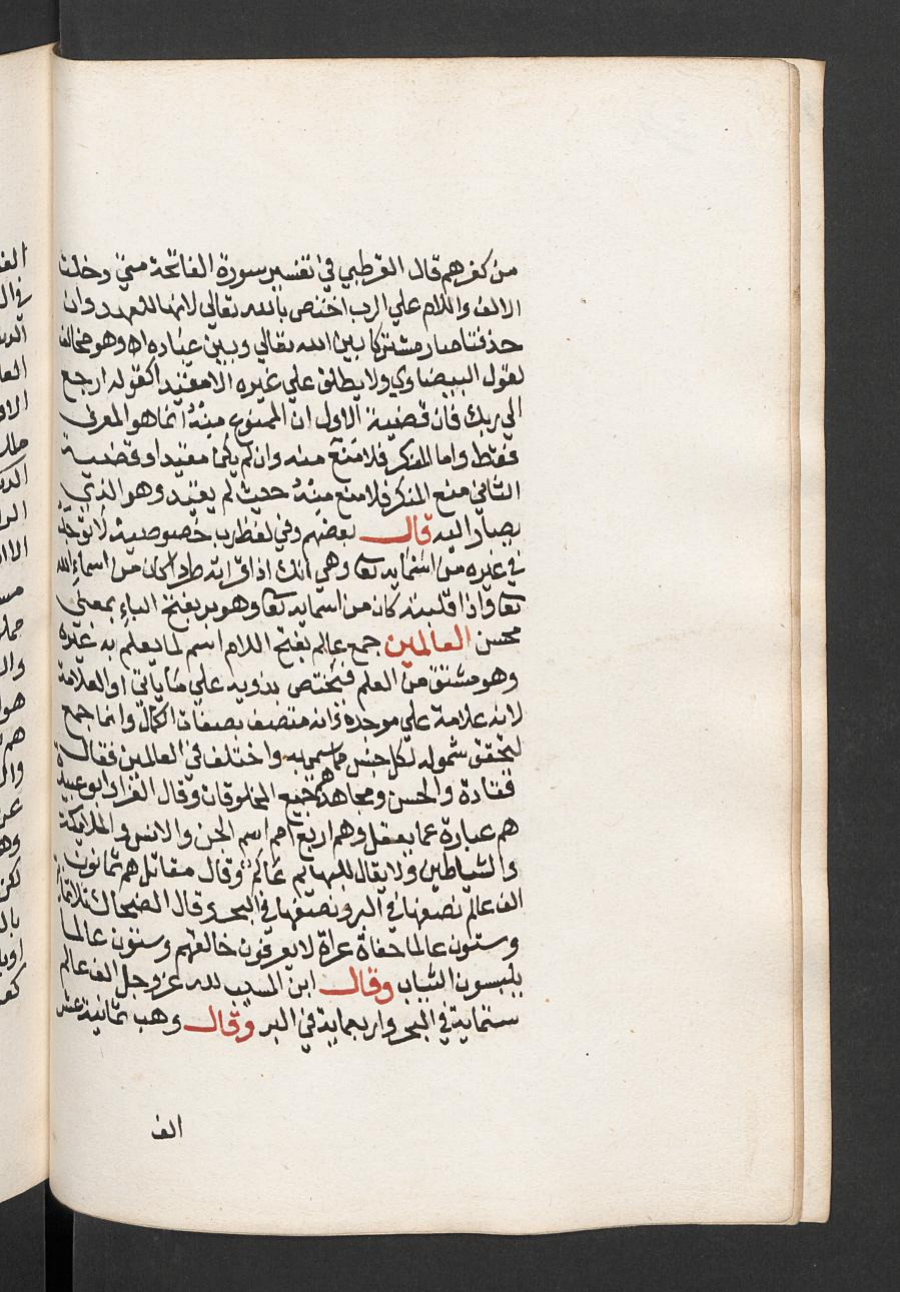 من كفرهم قال القرطبي في تفسير سورة الفاتحة متى دخلت
الالف واللام علي الرب اختص بالله تعالي لانها للعهد وان
حذفنا صار مشتركا بين الله تعالي وبين عباده اه وهو مخالف
لقول البيضاوي ولا يطلق علي غيره الا مقيدا كقوله ارجع
الي ربك فان قضية الاول ان الممنوع منه انما هو المعرف
فقط واما المنكر فلا منع منه وان لم يكن مقيدا وقضية
الثاني منع المنكر فلا منع منه حيث لم يقيد وهو الذي
يصار اليه قال بعضهم وفي لفظ رب خصوصية لا توجد
في غيره من اسمايه تعا وهي انك اذا قراته طردا كان من اسماء الله
تعا واذا قلبته كان من اسمايه تعا وهو بر بفتح الباء بمعني
محسن العالمين جمع عالم بفتح اللام اسم لما يعلم به غيره
وهو مشتق من العلم فيختص بذويه علي ما ياتي او العلامة
لانه علامة علي موجده فانه متصف بصفات الكمال وانما جمع
ليحقق شموله لكل جنس مما سمي به واختلف في العالمين فقال
قتادة والحسن ومجاهد هم جميع المخلوقات وقال الفرا وابو عبيدة
هم عبارة عما يعقل وهم اربع امم اسم الجن والانس والملايكة
والشياطين ولا يقال للبهايم عالم وقال مقاتل هم ثمانون
الف عالم نصفها في البر ونصفها في البحر وقال الضحاك ثلاثماية
وستون عالما حفاة عراة لا يعرفون خالقهم وستون عالما
يلبسون الثياب وقال ابن المسيب لله عز وجل الف عالم
ستماية في البحر واربعماية في البر وقال وهب ثمانية عشر
الف